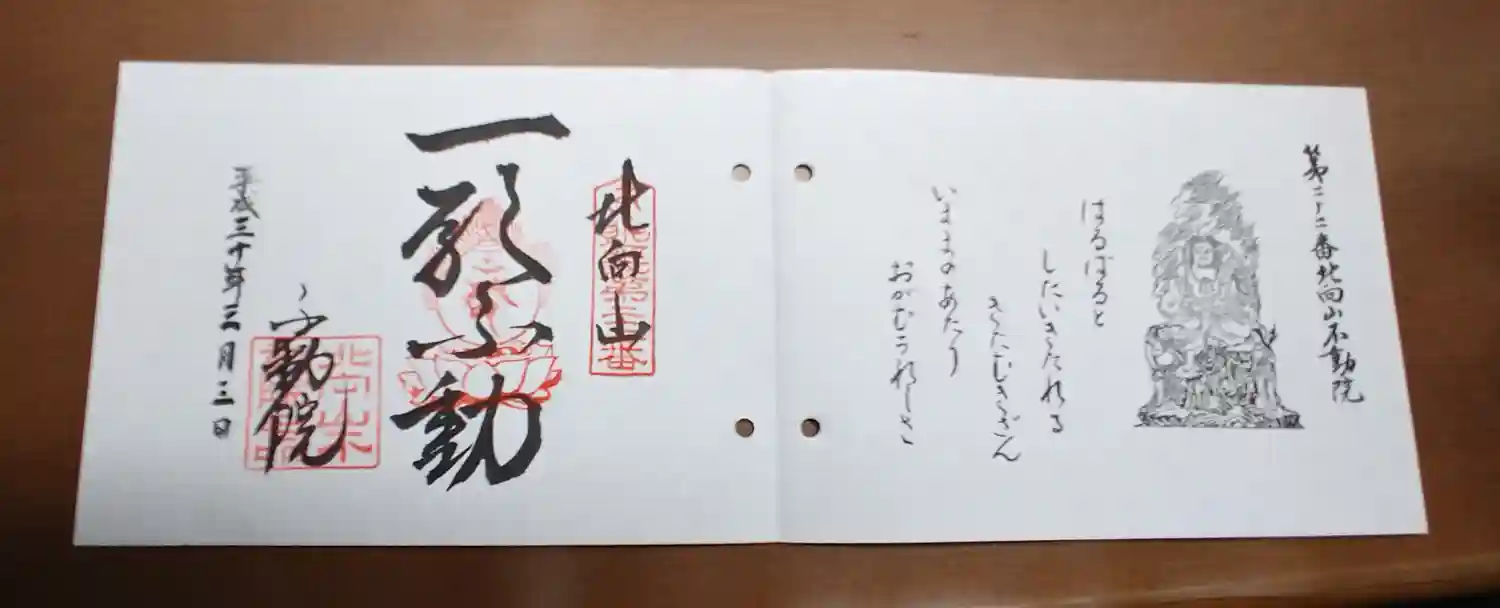 第二十二番北向山不動院
はるばると
したいきたれる
きたむきざん
いままのあたり
おがむうれしさ
北向山
一願不動
不動院
平成三十年三月三日